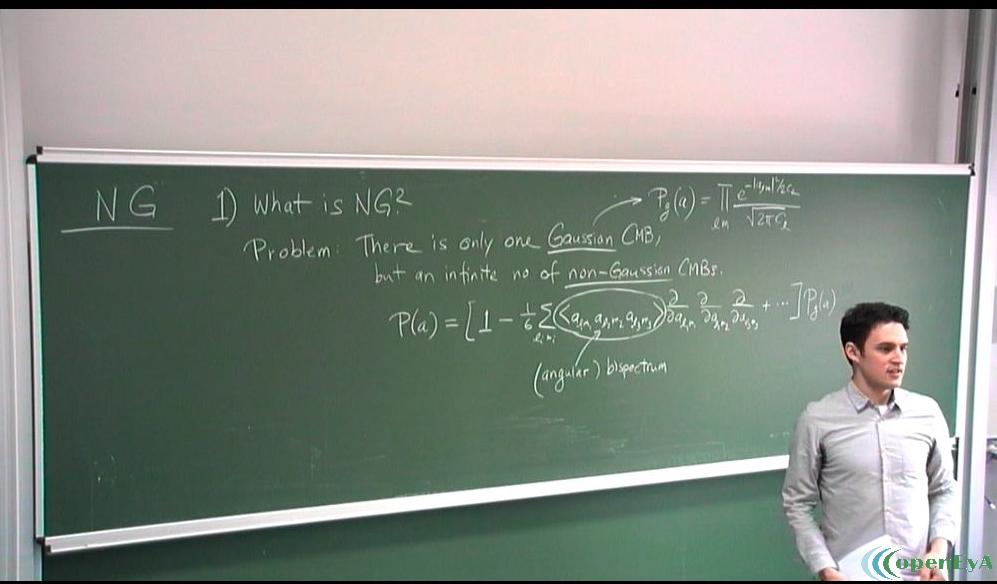 NG
1) What is NG?
P_g(a) = ∏_{lm} e^{-|a_{lm}|²/2C_l} / √(2πC_l)
Problem: There is only one Gaussian CMB,
but an infinite no of non-Gaussian CMBs.
P(a) = [1 - 1/6 ∑_{l_i m_i} <a_{l_1m_1} a_{l_2m_2} a_{l_3m_3}> ∂/∂a_{l_1m_1} ∂/∂a_{l_2m_2} ∂/∂a_{l_3m_3} + ...] P_g(a)
(angular) bispectrum
openEyA